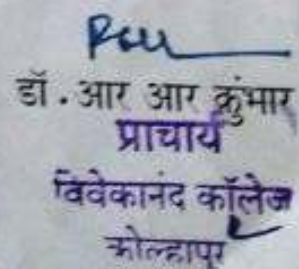 डॉ. आर आर कुंभार
प्राचार्य
विवेकानंद कॉलेज
कोल्हापुर